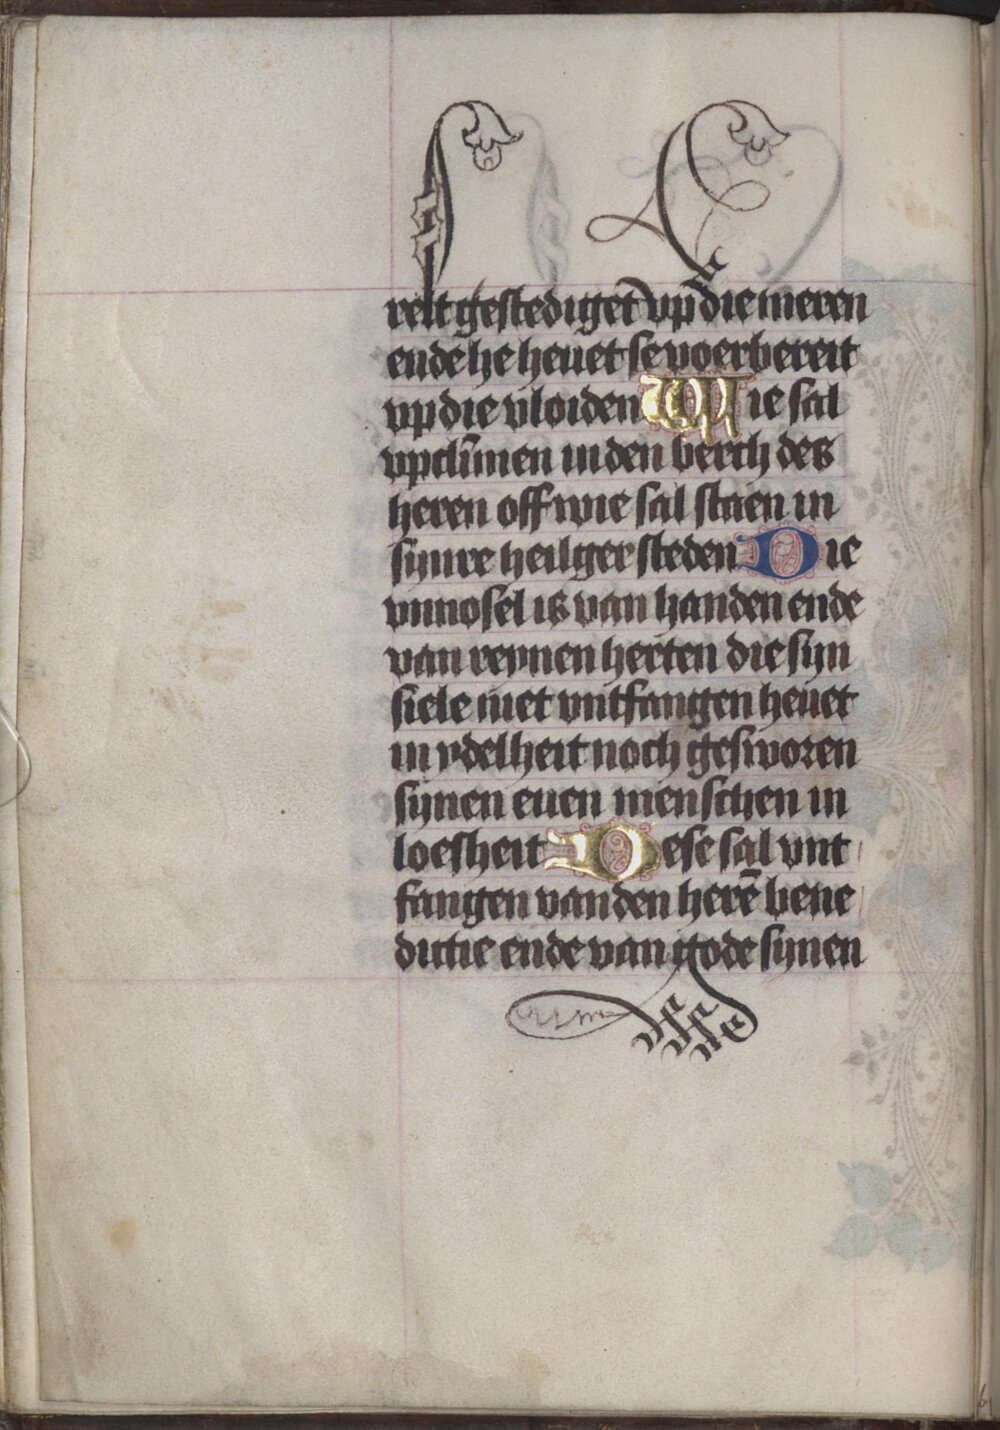 relt gestediget vp die meren
ende he heuet se voerbereit
vp die vloiden Wie sal
vpclīmen in den berch des
heren off wie sal staen in
sijnre heiliger steden Die
vnnosel is van handen ende
van reynen herten die sijn
siele niet vntfangen heuet
in ydelheit noch gesworen
sijnen euen menschen in
loesheit Dese sal vnt
fangen van den herē bene
dictie ende van gode sijnen